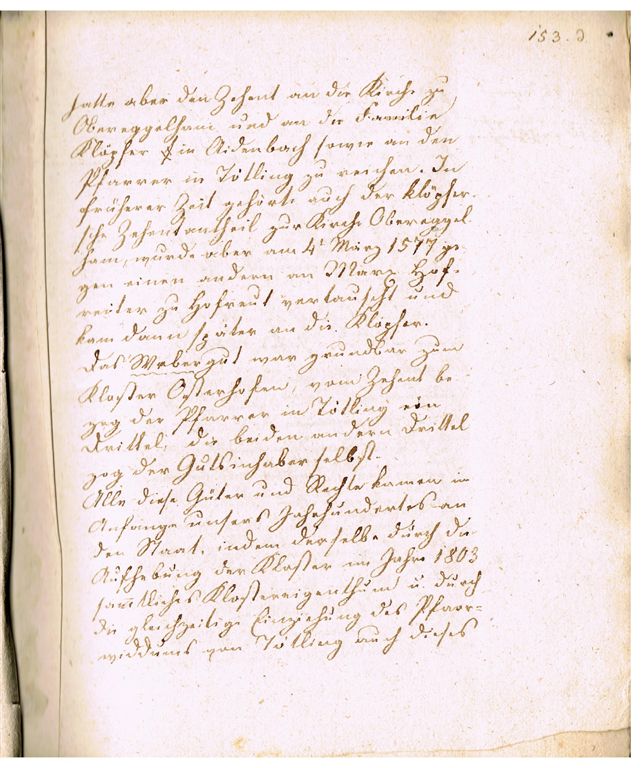 153. d
hatte aber den Zehent an die Kirche zu
Obereggelham und an die Familie
Klöpfer in Aidenbach sowie an den
Pfarrer in Tötling zu reichen. In
früherer Zeit gehörte auch der Klöpfer-
sche Zehentantheil zur Kirche Obereggel
ham, wurde aber am 4t März 1577 ge-
gen einen andern an Marx Hof-
reiter zu Hofreut vertauscht und
kam dann später an die Klöpfer.
Das Webergut war grundbar zum
Kloster Osterhofen, vom Zehent be
zog der Pfarrer in Tötling ein
Drittel, die beiden andern Drittel
zog der Gutsinhaber selbst.
Alle diese Güter und Rechte kamen im
Anfange unsers Jahrhundertes an
den Staat, indem derselbe durch die
Aufhebung der Kloster im Jahre 1803
sam̅tliches Klostereigenthum u. durch
die gleichzeitige Einziehung des Pfarr-
widdums von Tötling auch dieses